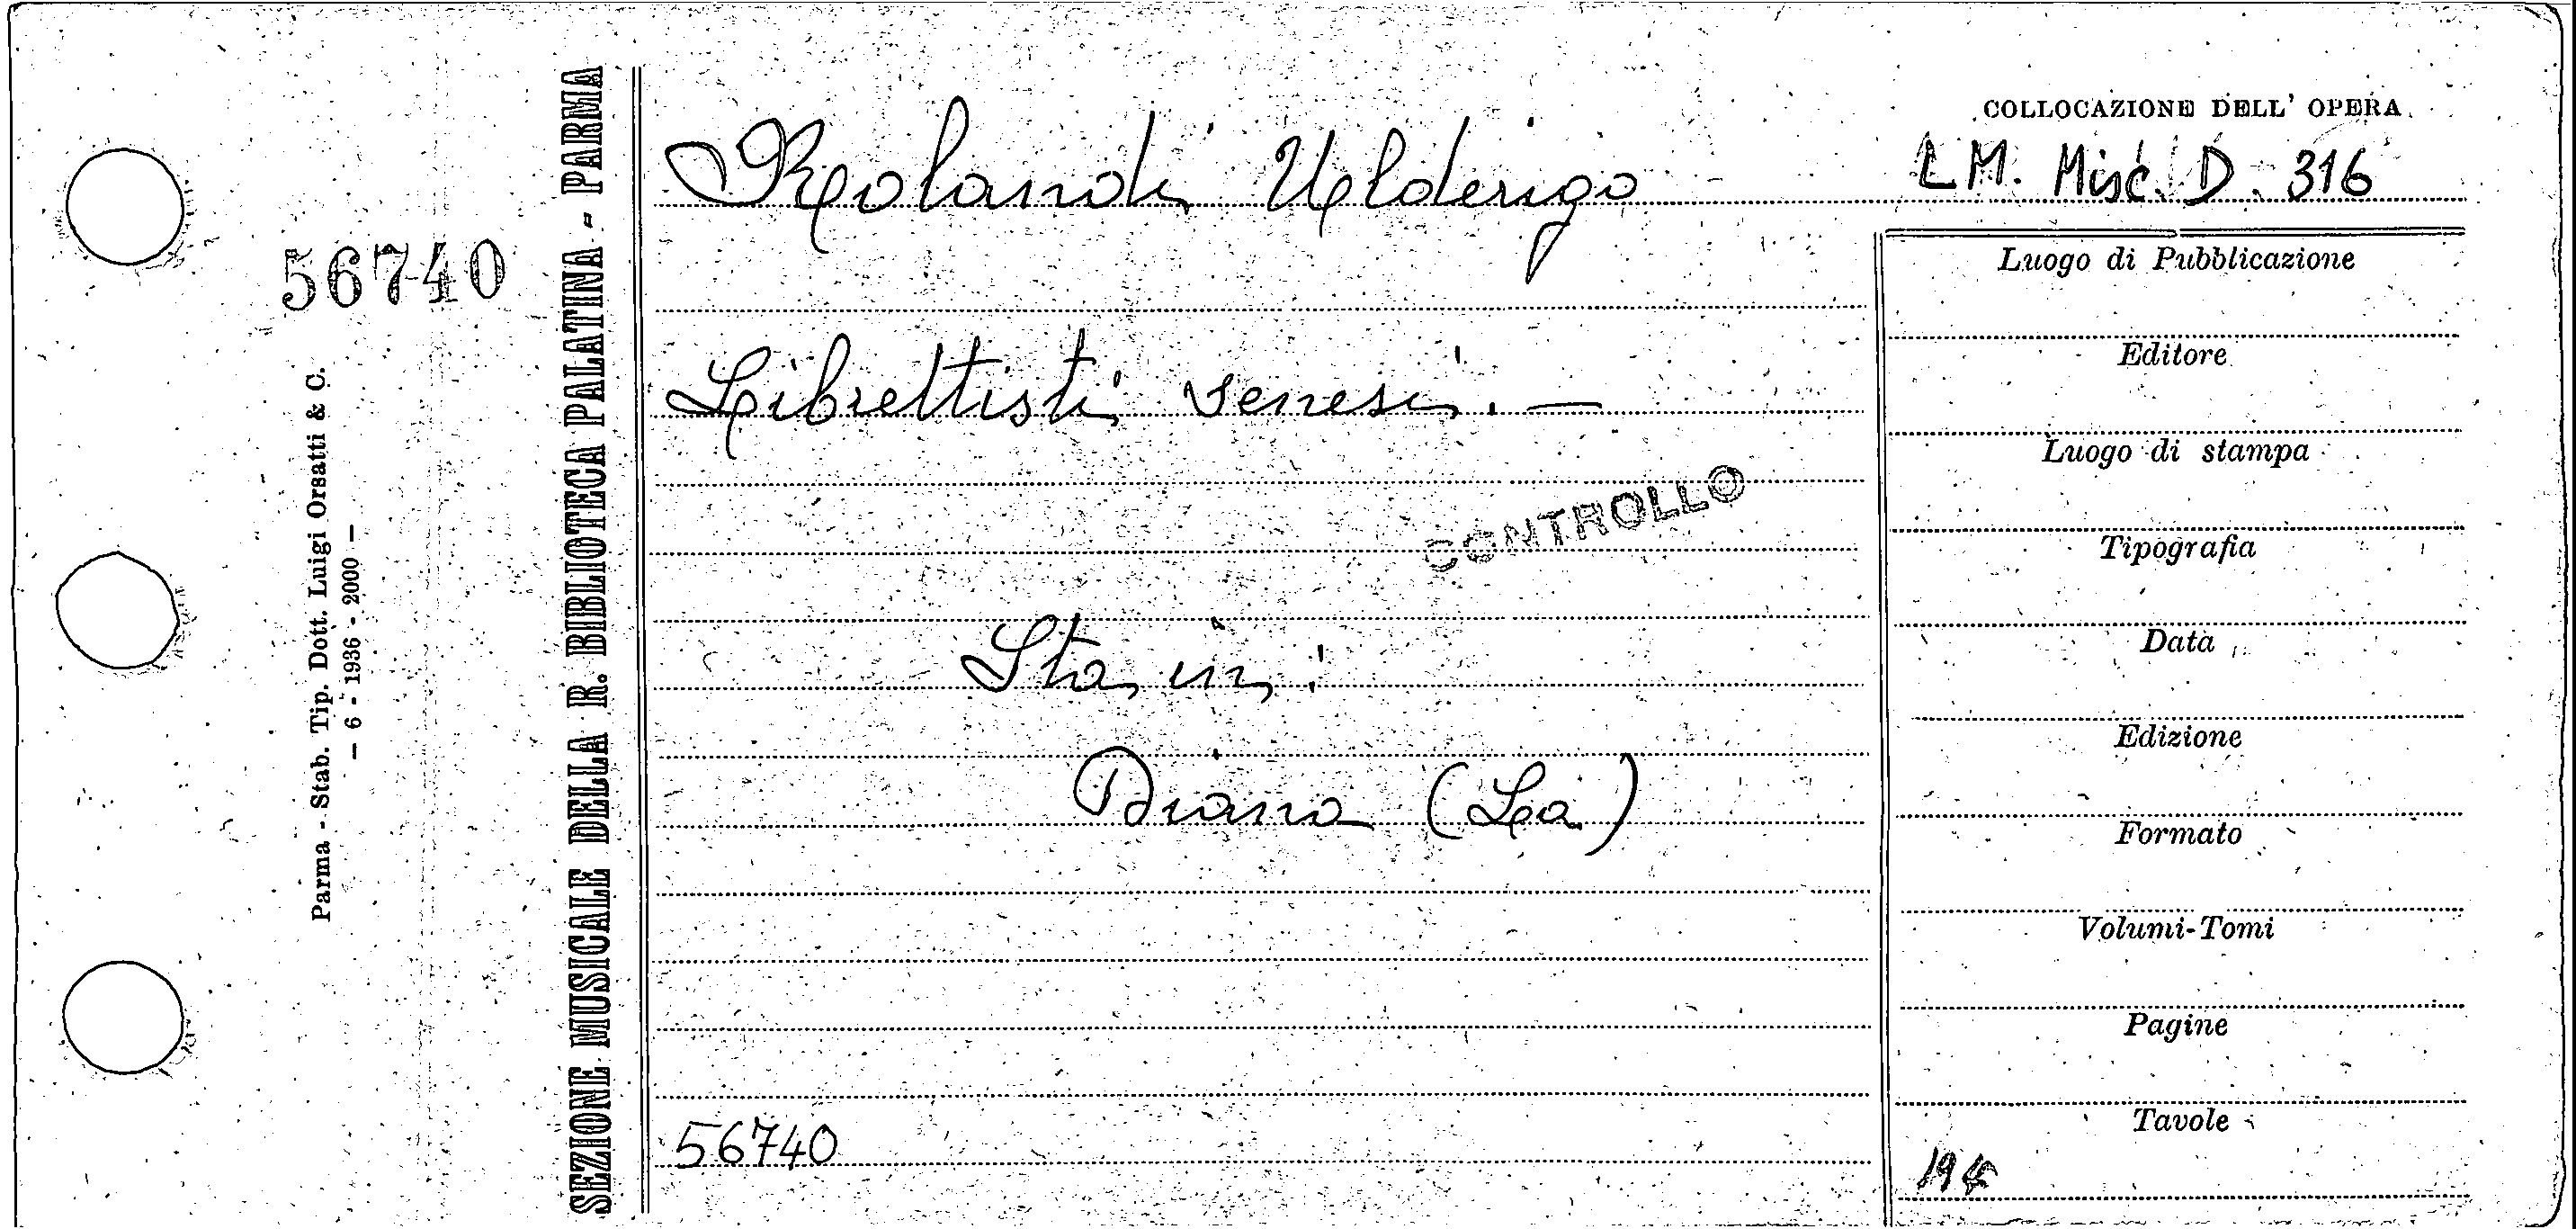 COLLOCAZIONE DELL' OPERA
Rolandi Ulderigo
L M. Misc. D. 316
56740
Librettisti senesi. —
CONTROLLO
Sta in:
Diana (La)
56740
Luogo di Pubblicazione
Editore
Luogo di stampa
Tipografia
Data
Edizione
Formato
Volumi-Tomi
Pagine
Tavole
SEZIONE MUSICALE DELLA R. BIBLIOTECA PALATINA - PARMA
Parma - Stab. Tip. Dott. Luigi Orsatti & C.
— 6 - 1936 - 2000 —